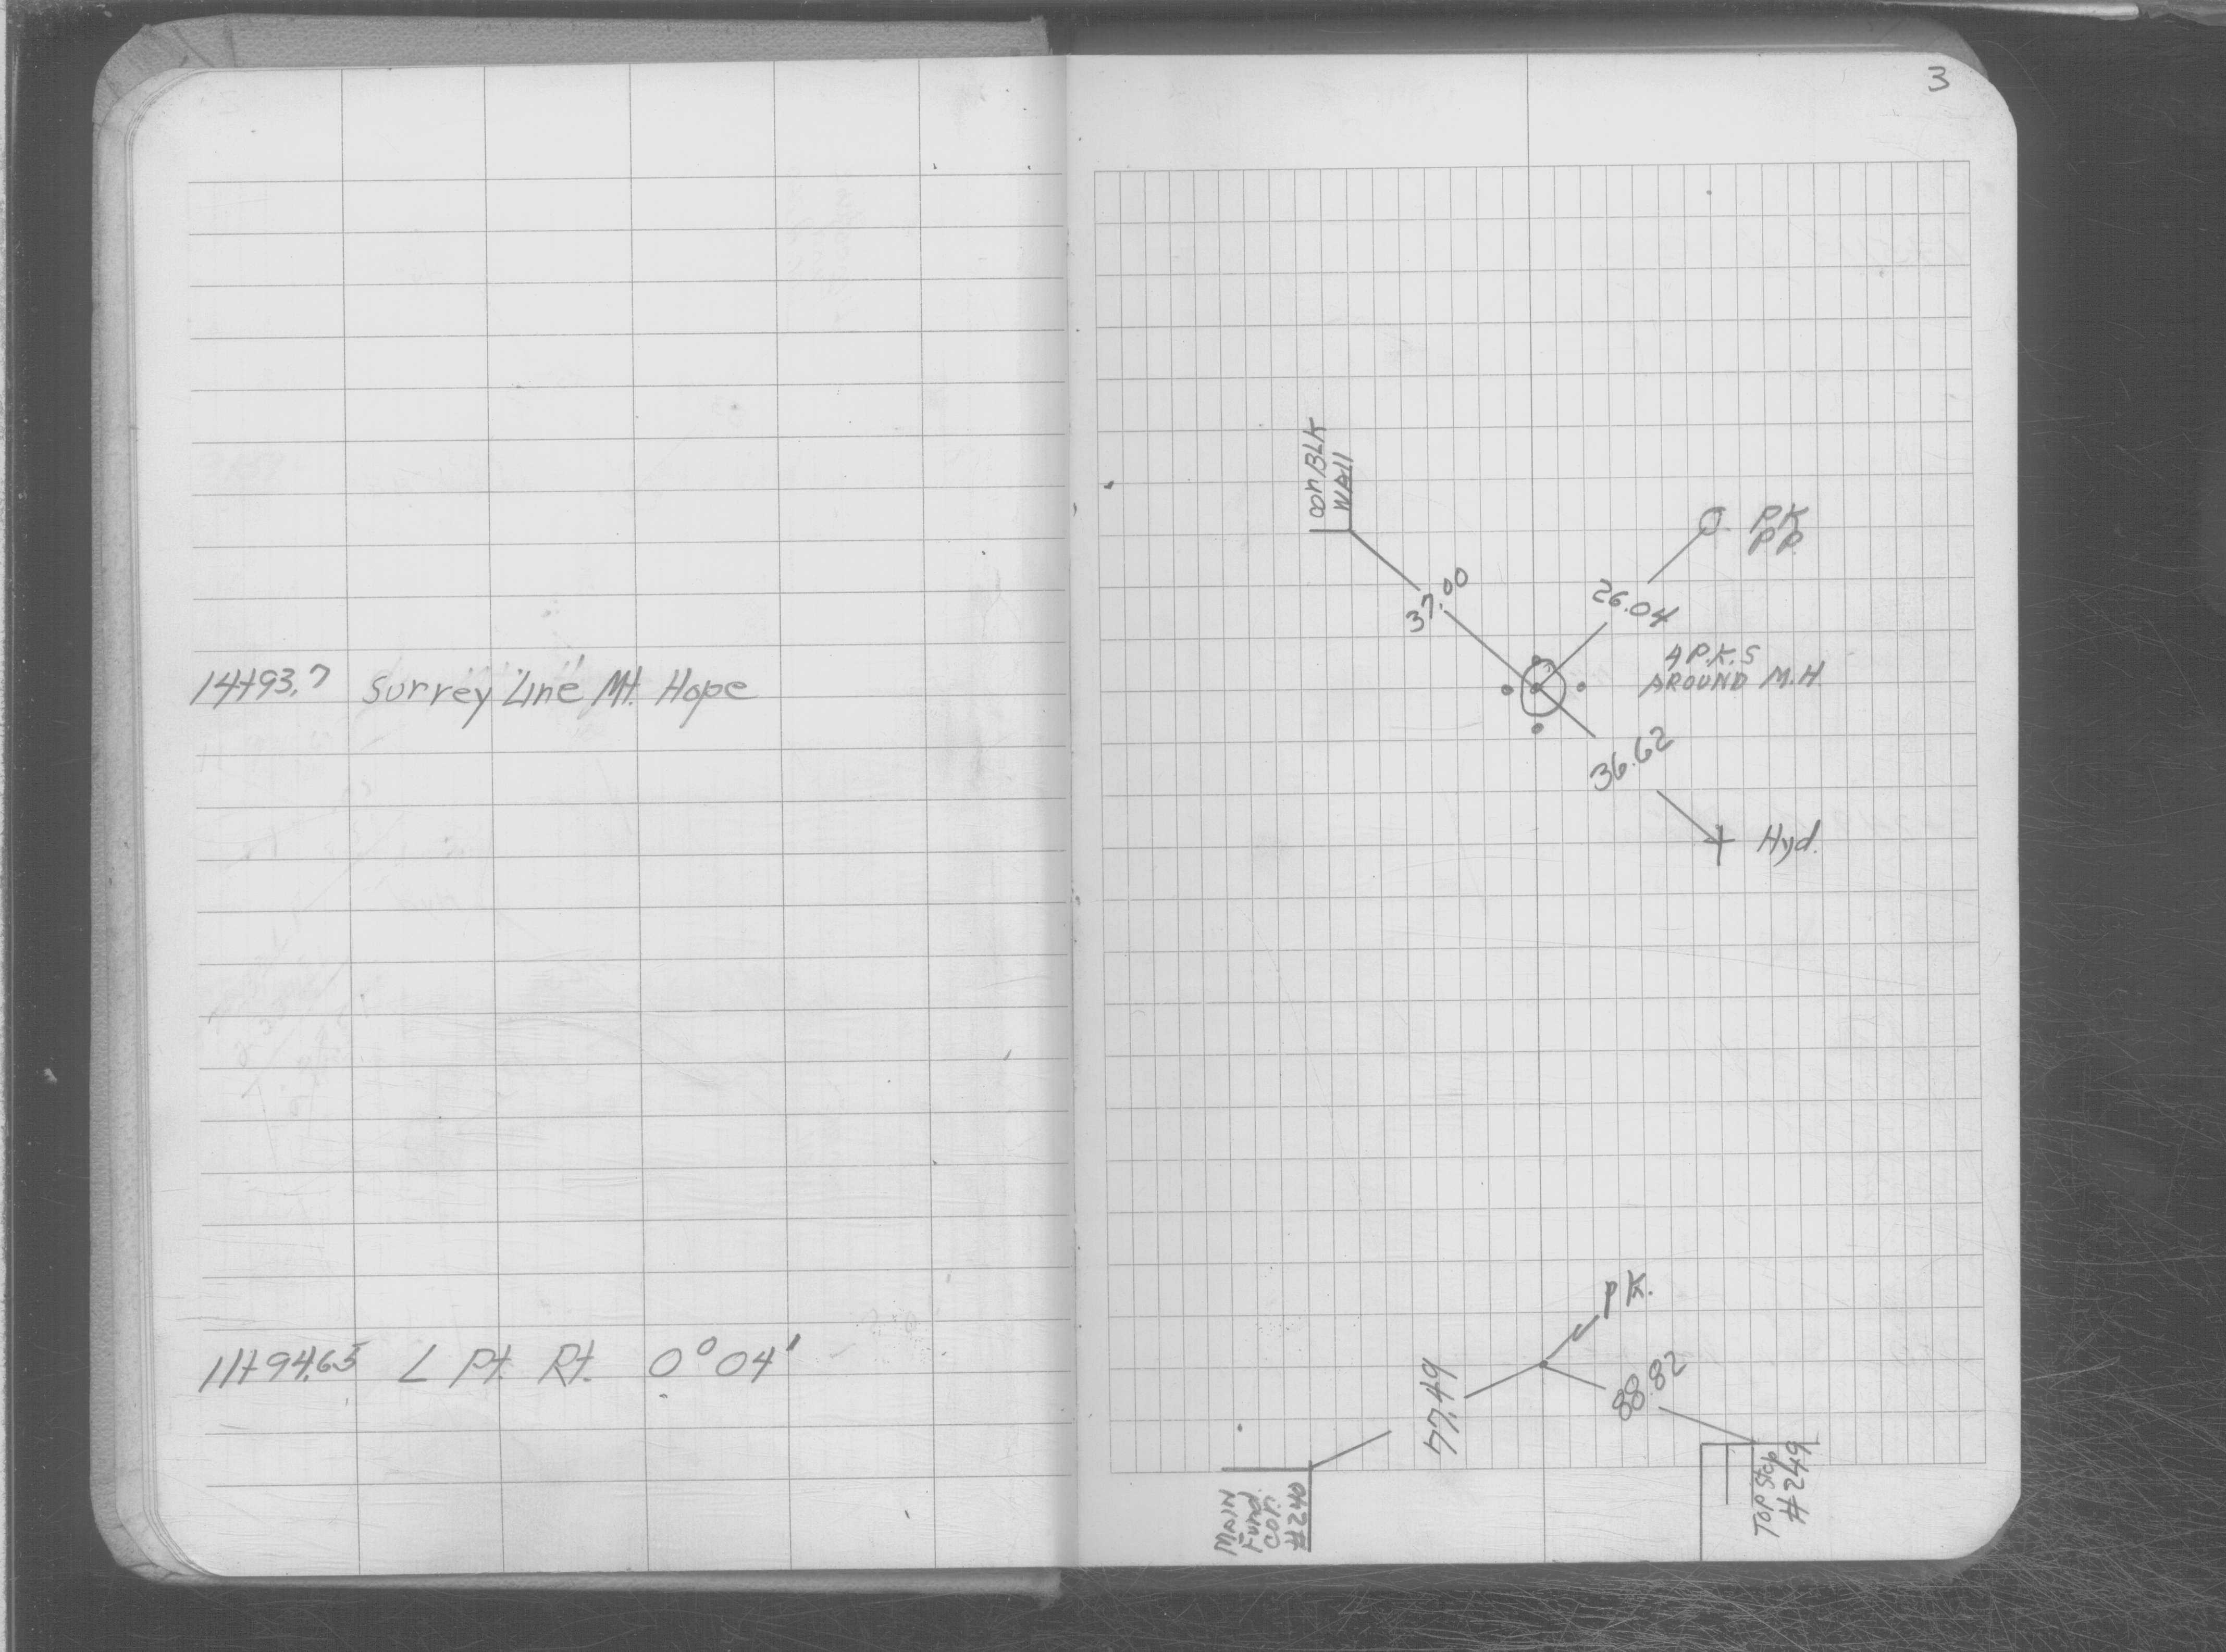 3
cor. BLK
WAll
P.K.
P.P.
37.00
26.04
4 P.K.S
AROUND M.H.
14+93.7 Survey Line Mt. Hope
36.62
Hyd.
P.K.
11+94.65 L Pt. Rt. 0°04'
77.49
88.82
MAIN
Fund.
cor.
#240
Top Step
#249